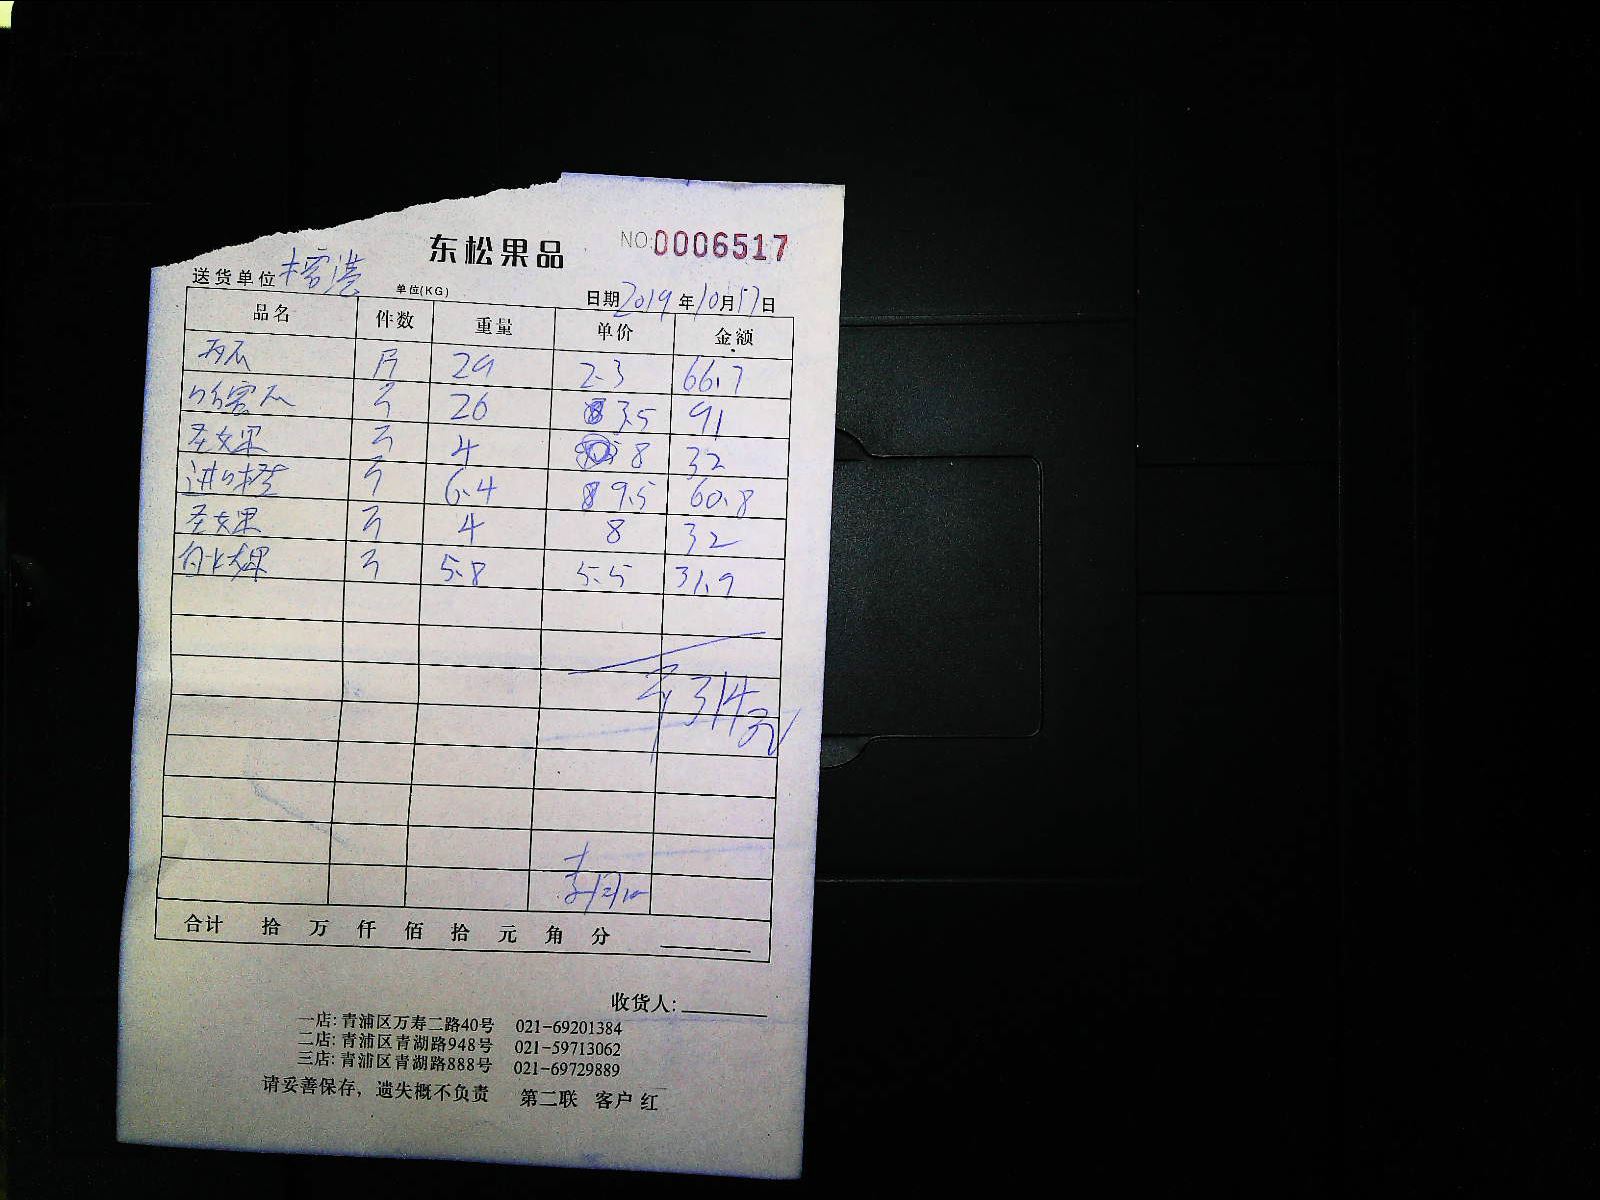 东松果品
NO:0006517
送货单位
单位(KG)
日期2019年10月17日
品名 件数 重量 单价 金额
西瓜 29 2.3 66.7
哈密瓜 26 3.5 91
圣女果 4 8 32
进口橙 6.4 9.5 60.8
圣女果 4 8 32
5.8 5.5 31.9
314元
合计 拾 万 仟 佰 拾 元 角 分
收货人:
一店: 青浦区万寿二路40号 021-69201384
二店: 青浦区青湖路948号 021-59713062
三店: 青浦区青湖路888号 021-69729889
请妥善保存，遗失概不负责 第二联 客户 红